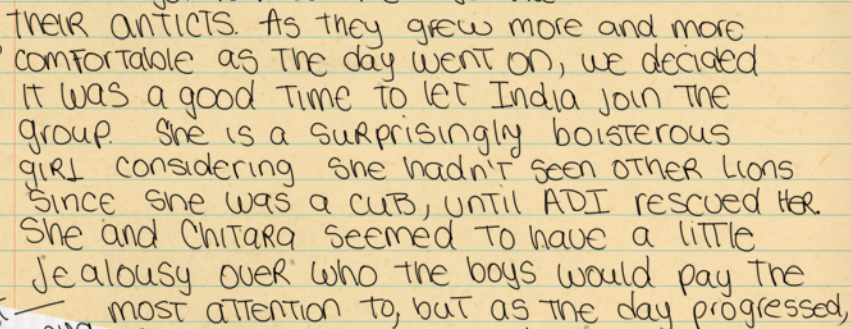 their anticts. As they grew more and more
comfortable as the day went on, we decided
it was a good time to let India join the
group. She is a surprisingly boisterous
girl considering she hadn't seen other lions
since she was a cub, until ADI rescued her.
She and Chitara seemed to have a little
jealousy over who the boys would pay the
most attention to, but as the day progressed,